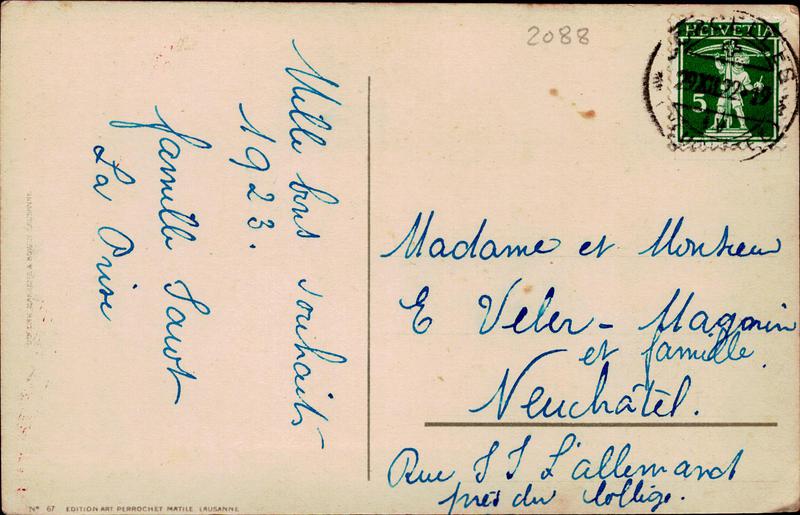 2088
HELVETIA
5
29.XII.22-19
Mille bons souhaits
1923.
famille
La Prise
Madame et Monsieur
E Veler - Magnin
et famille
Neuchâtel.
Rue J J L'allemand
près du Collège.
Nº 67 EDITION ART PERROCHET MATILE LAUSANNE